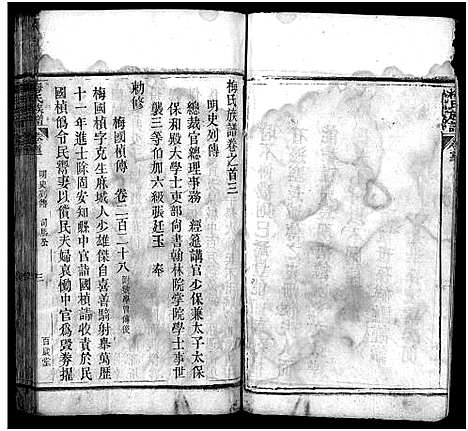 梅氏族譜卷之首三
明史列傳
總裁官總理事務 經筵講官少保兼太子太保
保和殿大學士吏部尚書翰林院掌院學士事世
襲三等伯加六級張廷玉 奉
勅修
梅國楨傳 卷二百二十八
梅國楨字克生麻城人少雄傑自喜善騎射舉萬歷
十一年進士除固安知縣中官詣國楨請收責於民
國楨偽令民鬻妻以償民夫婦哀慟中官為毀券擢
梅氏族譜
卷首三
明史列傳
三
百歲堂